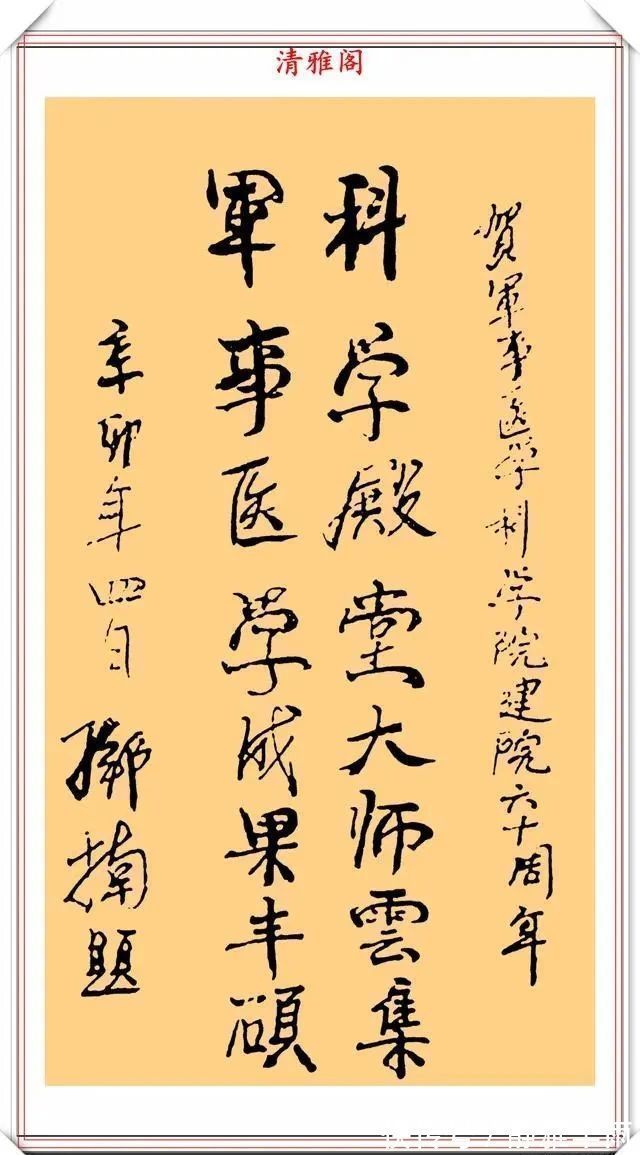 清雅阁
贺軍事医学科学院建院六十周年
科学殿堂大师雲集
軍事医学成果丰硕
辛卯年四月
鄧楠題